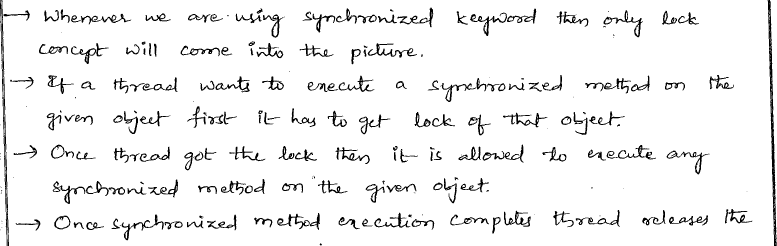 → Whenever we are using synchronized keyword then only lock
concept will come into the picture.
→ If a thread wants to execute a synchronized method on the
given object first it has to get lock of that object.
→ Once thread got the lock then it is allowed to execute any
synchronized method on the given object.
→ Once synchronized method execution completes thread releases the